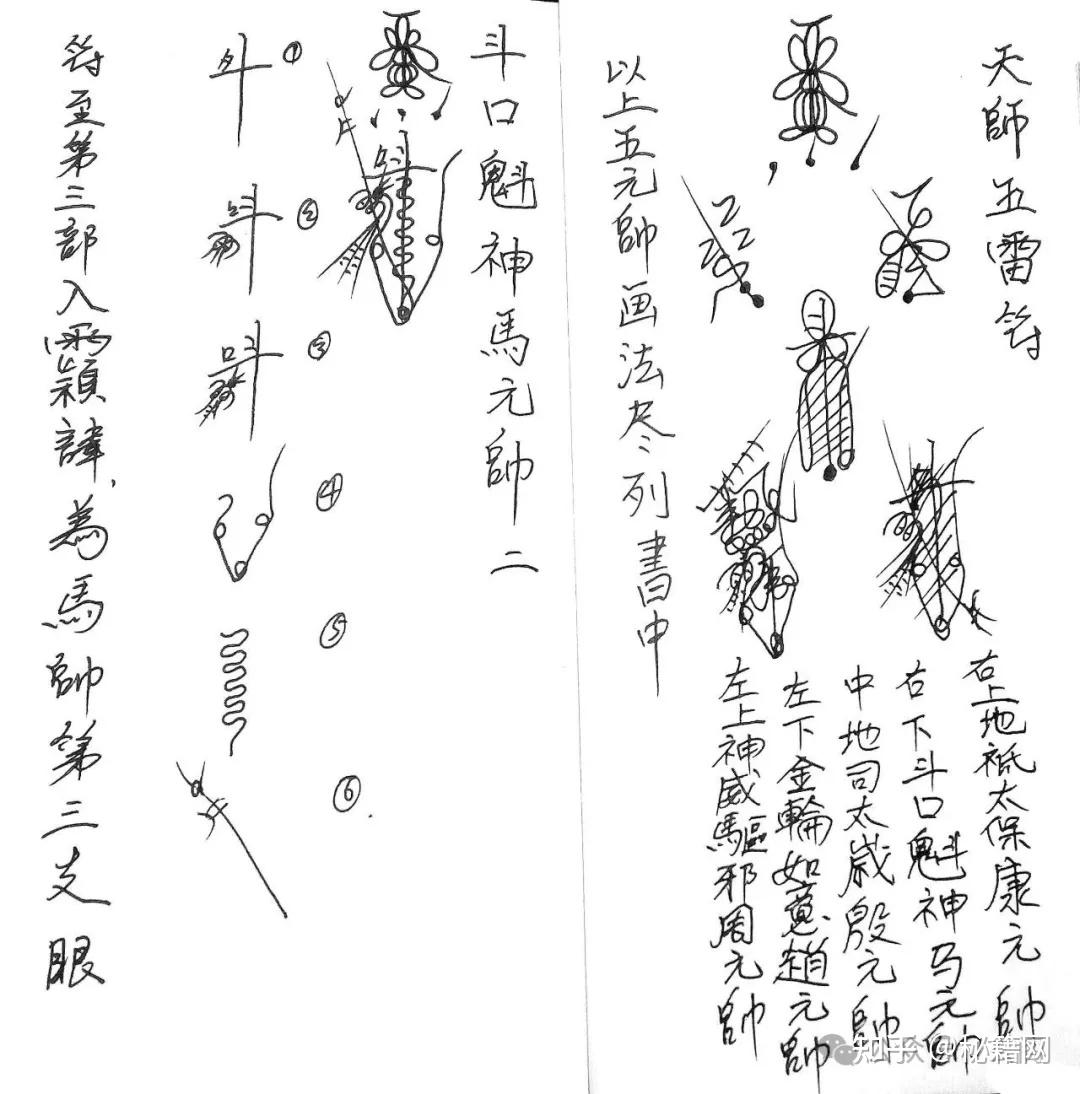 天師五雷符
右上地祇太保康元帥
右下斗口魁神马元帥
中地司太歲殷元帥
左下金輪如意趙元帥
左上神威驅邪周元帥
以上五元帥画法尽列書中
斗口魁神馬元帥 二
①
②
③
④
⑤
⑥
符至第三部入 諱,為馬帥第三支眼
知乎 @秘籍网